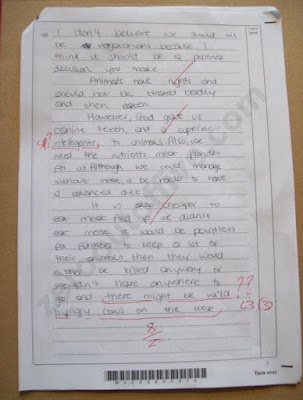 I don't believe we should all
be vegetarians because I
think it should be a personal
decision you make.
Animals have rights and
should not be treated badly
and then eaten.
However, God gave us
canine teeth, and a superior
intelegents, to animals. Also, we
need the nutrients meat provides
for us. Although we could manage
without meat, it be harder to have
a balanced diet.
It is also cheaper to
eat meat. And if we didn't
eat meat it would be pointless
for farmers to keep a lot of
their animals, then they would
either be killed anyway or
wouldn't have anywhere to
go, and there might be wild
hungry cows on the loose.
??
L3 3
8
Turn over